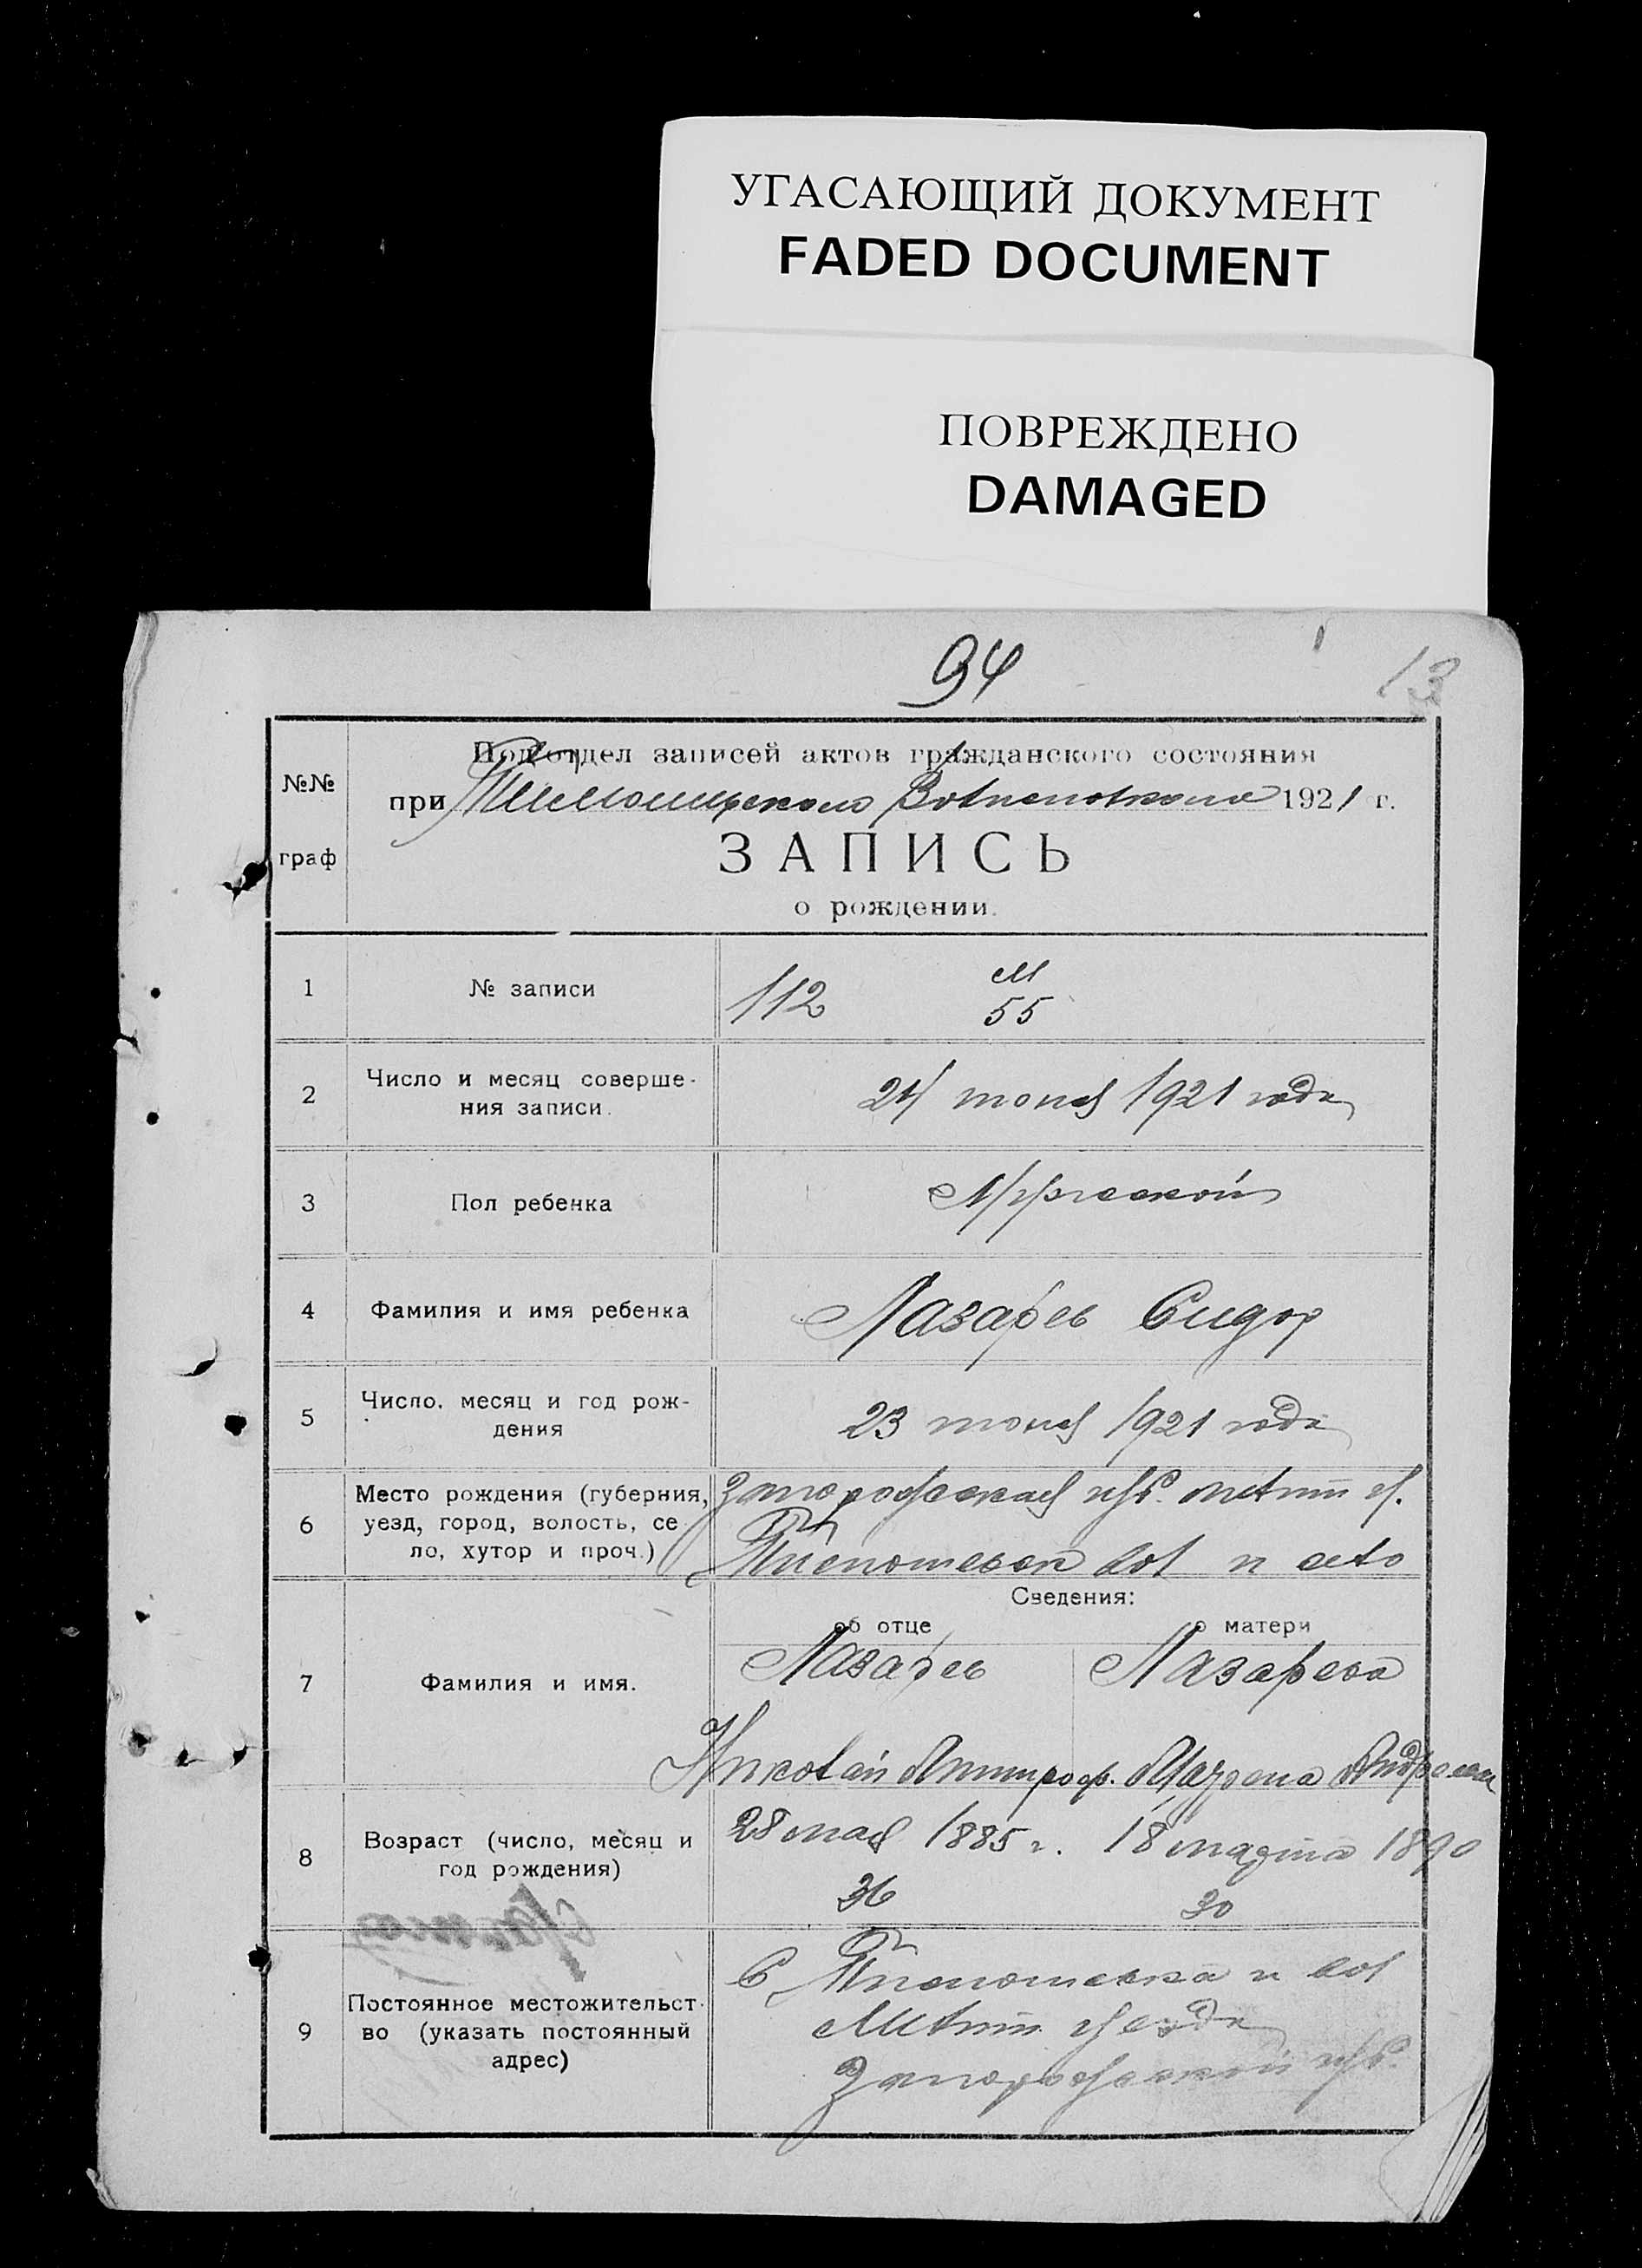 УГАСАЮЩИЙ ДОКУМЕНТ
FADED DOCUMENT
ПОВРЕЖДЕНО
DAMAGED
94
13
№№ граф
Подотдел записей актов гражданского состояния
при Волисполкоме 1921 г.
ЗАПИСЬ
о рождении.
1 № записи 112 М
55
2 Число и месяц соверше-
ния записи. 24 июня 1921 года
3 Пол ребенка Мужеской
4 Фамилия и имя ребенка Лазарев Сидор
5 Число, месяц и год рож-
дения 23 июня 1921 года
6 Место рождения (губерния,
уезд, город, волость, се-
ло, хутор и проч.) Запорожская губ. Мелит у.
вол и село
Сведения:
об отце о матери
7 Фамилия и имя. Лазарев Лазарева
Николай Андреев
8 Возраст (число, месяц и
год рождения) 28 мая 1885 г. 18 марта 1890
36 30
9 Постоянное местожительст-
во (указать постоянный
адрес) С и вол
Мелит уезда
Запорожской губ.